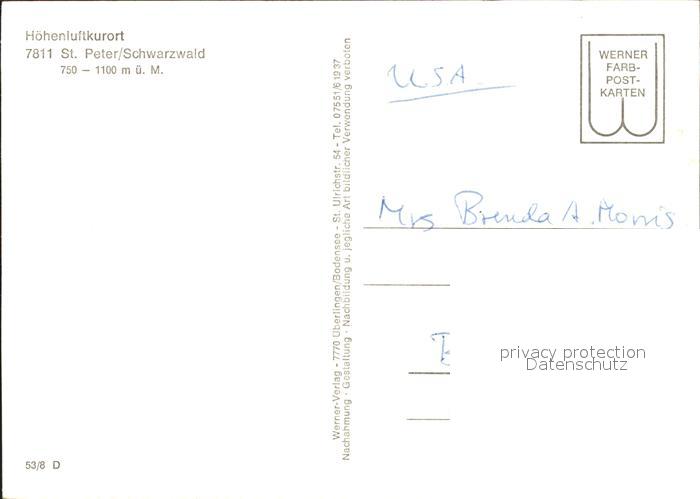 Höhenluftkurort
7811 St. Peter/Schwarzwald
750 – 1100 m ü. M.
53/8 D
Werner-Verlag - 7770 Überlingen/Bodensee - St. Ulrichstr. 54 - Tel. 07551/61937
Nachahmung - Gestaltung - Nachbildung u. jegliche Art bildlicher Verwendung verboten
USA
WERNER
FARB-
POST-
KARTEN
Mrs Brenda A. Morris
privacy protection
Datenschutz